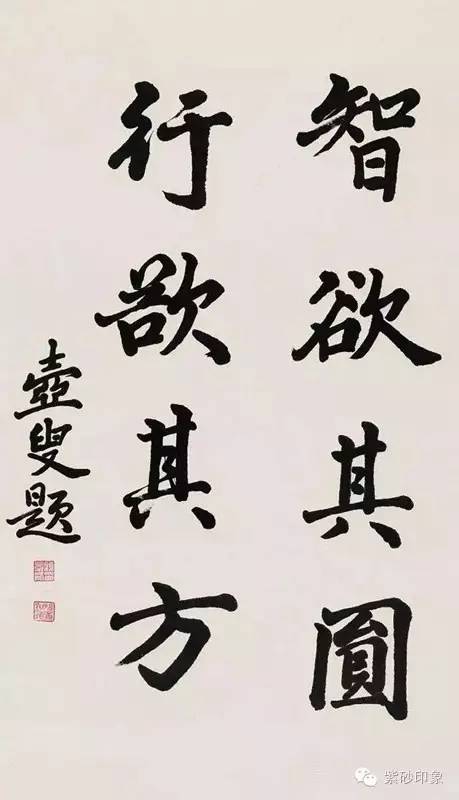 智欲其圓
行欲其方
壺叟題
紫砂印象